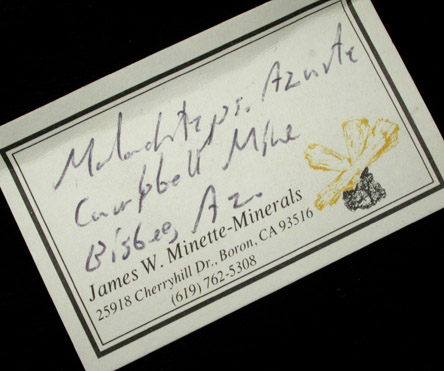 Malachite ps. Azurite
Campbell Mine
Bisbee, Az.
James W. Minette-Minerals
25918 Cherryhill Dr., Boron, CA 93516
(619) 762-5308